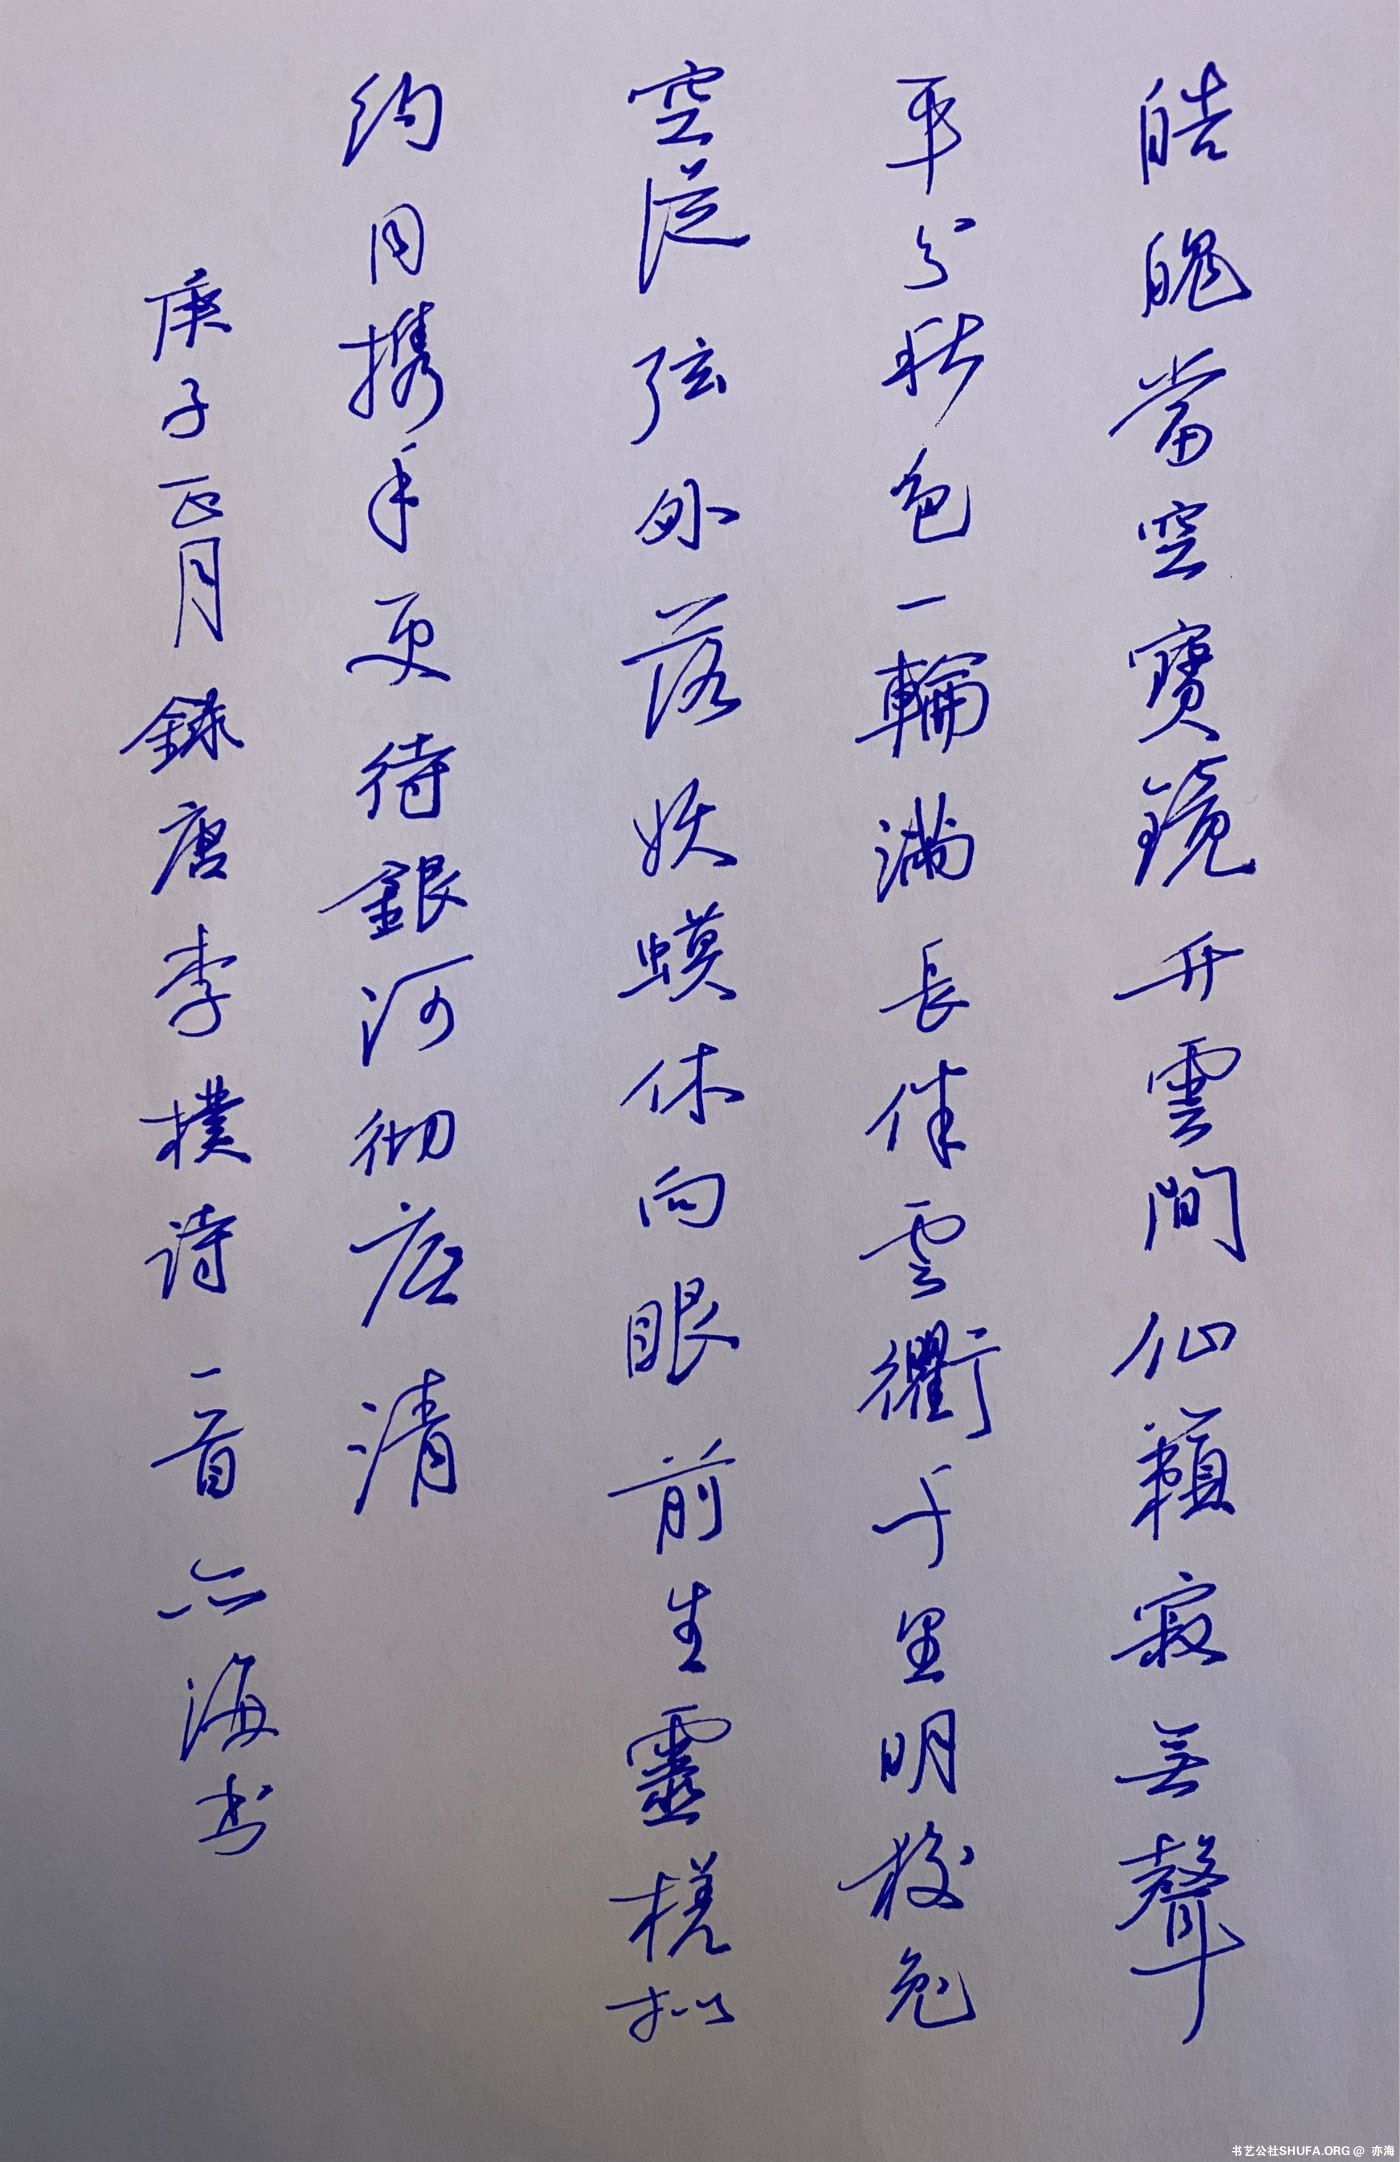 皓魄當空寶鏡升雲間仙籟寂無聲
平分秋色一輪滿長伴雲衢千里明狡兔
空從弦外落妖蟆休向眼前生靈槎拟
约同携手更待銀河彻底清
庚子正月録唐李樸诗一首亦海书
书艺公社SHUFA.ORG @ 亦海